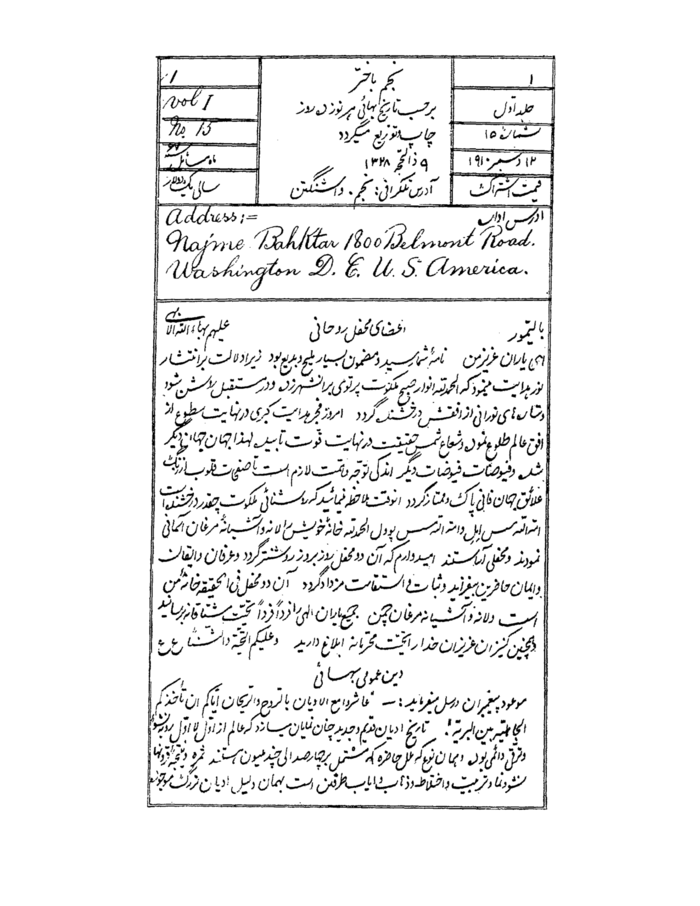 1
نجم باختر
۱
vol I
برحسب تاریخ بهائی هر نوزده روز
جلد اول
No 15
چاپ و توزیع میگردد
شماره ۱۵
۹ ذالحجه ۱۳۲۸
۱۲ دسمبر ۱۹۱۰
آدرس تلگرافی: نجم. واشنگتن
قیمت اشتراک
Address:=
ادرس اداره
Najme Bahktar 1800 Belmont Road.
Washington D. C. U. S. America.
بالتیمور
اعضای محفل روحانی
علیهم بهاءالله الأبهی
ای یاران عزیز من نامهٔ شما رسید و مضمون بسیار ملیح و بدیع بود زیرا دلالت بر انتشار
نور هدایت مینمود که الحمدلله انوار صبح ملکوت پرتوی بر انشهر زده و در مستقبل روشن شود
و ستاره‌های نورانی از افقش درخشنده گردد امروز فجر هدایت کبری در نهایت سطوع از
افق عالم طلوع نموده و شعاع شمس حقیقت در نهایت قوت تابیده لهذا جهان جهان دیگر
شده و فیوضات فیوضات دیگر اندکی توجه و دقت لازم است تا صفحات قلوب از زنگ
علائق جهان فانی پاک و ممتاز گردد انوقت ملاحظه نمائید که روشنائی ملکوت چقدر درخشنده است
امةالله مسس و امةالله مسس الحمدلله خانهٔ خویش را لانه و آشیانهٔ مرغان آسمانی
نمودند و محفلی آراستند امیدوارم که آن دو محفل روز بروز روشنتر گردد و عرفان و ایقان
و ایمان حاضرین بیفزاید و ثبات و استقامت مزداد گردد آن دو محفل فی الحقیقه خانهٔ من
است و لانه و آشیانهٔ مرغان چمن جمیع یاران الهی را فرداً فرداً تحیت مشتاقانه برسانید
و همچنین کنیزان عزیزان خدا را تحیت محترمانه ابلاغ دارید وعلیکم التحیة والثناء ع ع
دین عمومی بهائی
موعود پیغمبران و رسل میفرماید :— "عاشروا مع الادیان بالروح والریحان ایاکم ان تأخذکم
الحمیة الجاهلیة بین البریة" تاریخ ادیان قدیم و جدید چنان نمایان میسازد که عالم از اول لا اول رو بنشو
و ترقی دائمی بوده و همان نوع که ملل حاضره که مشتمل بر چهارصد الی چند ملیون هستند ثمره و نتیجهٔ قرونها
نشو و نما و تربیت و اختلاط و ذهاب و ایاب طرفین است بهمان دلیل ادیان بزرگ موجوده